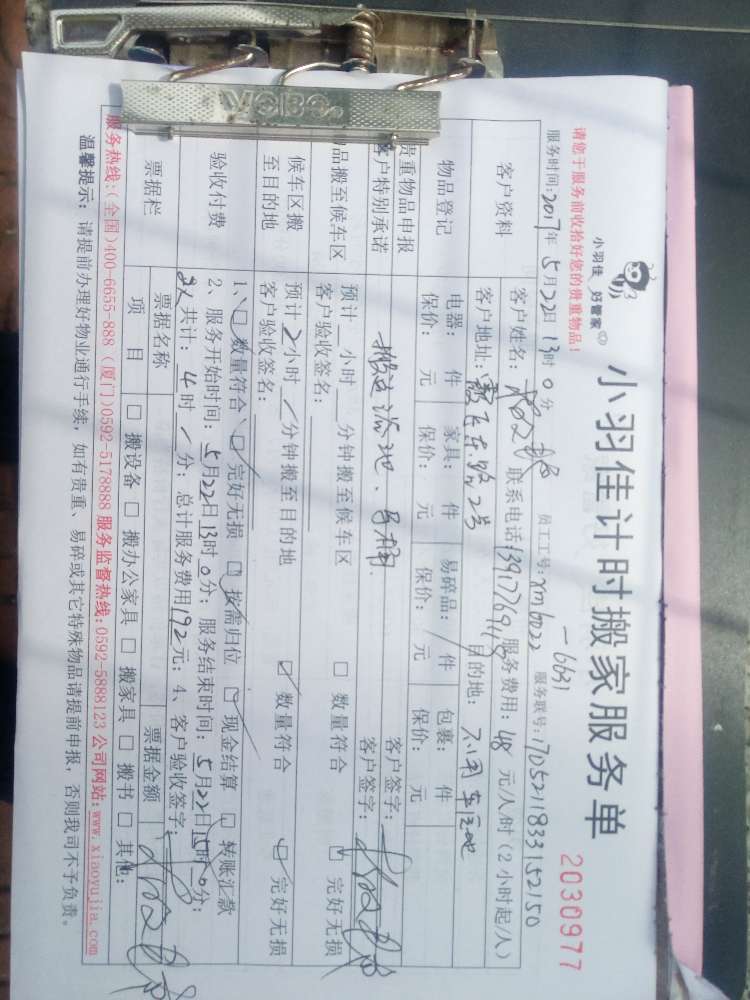 VOBO
小羽佳 好管家
小羽佳计时搬家服务单
2030977
请您于服务前收拾好您的贵重物品!
-6631
服务时间:2017年5月22日13时0分 员工工号:xm6022 服务联号:1705211833152150
客户资料
客户姓名: 联系电话 服务费用:48元/人/时(2小时起/人)
客户地址: 2号 目的地:
物品登记
电器: 件 家具: 件 易碎品: 件 包裹: 件
保价: 元 保价: 元 保价: 元 保价: 元
贵重物品申报 客户签字:
客户特别承诺 客户签字:
品搬至候车区 预计 小时 分钟搬至候车区 □ 数量符合 □ 完好无损
客户验收签名:
候车区搬至目的地 预计2小时/分钟搬至目的地 □ 数量符合 □ 完好无损
客户验收签名:
验收付费
1、□ 数量符合 □ 完好无损 □ 按需归位 □ 现金结算 □ 转账汇款
2、服务开始时间:5月22日13时0分;服务结束时间:5月22日15时0分;
2人共计:4时/分;总计服务费用192元;4、客户验收签字:
票据栏 票据名称 票据金额
项目 □ 搬设备 □ 搬办公家具 □ 搬家具 □ 搬书 □ 其他:
服务热线:(全国)400-6655-888 (厦门)0592-5178888 服务监督热线:0592-5888123 公司网站:www.xiaoyujia.com
温馨提示:请提前办理好物业通行手续,如有贵重、易碎或其它特殊物品请提前申报,否则我司不予负责。